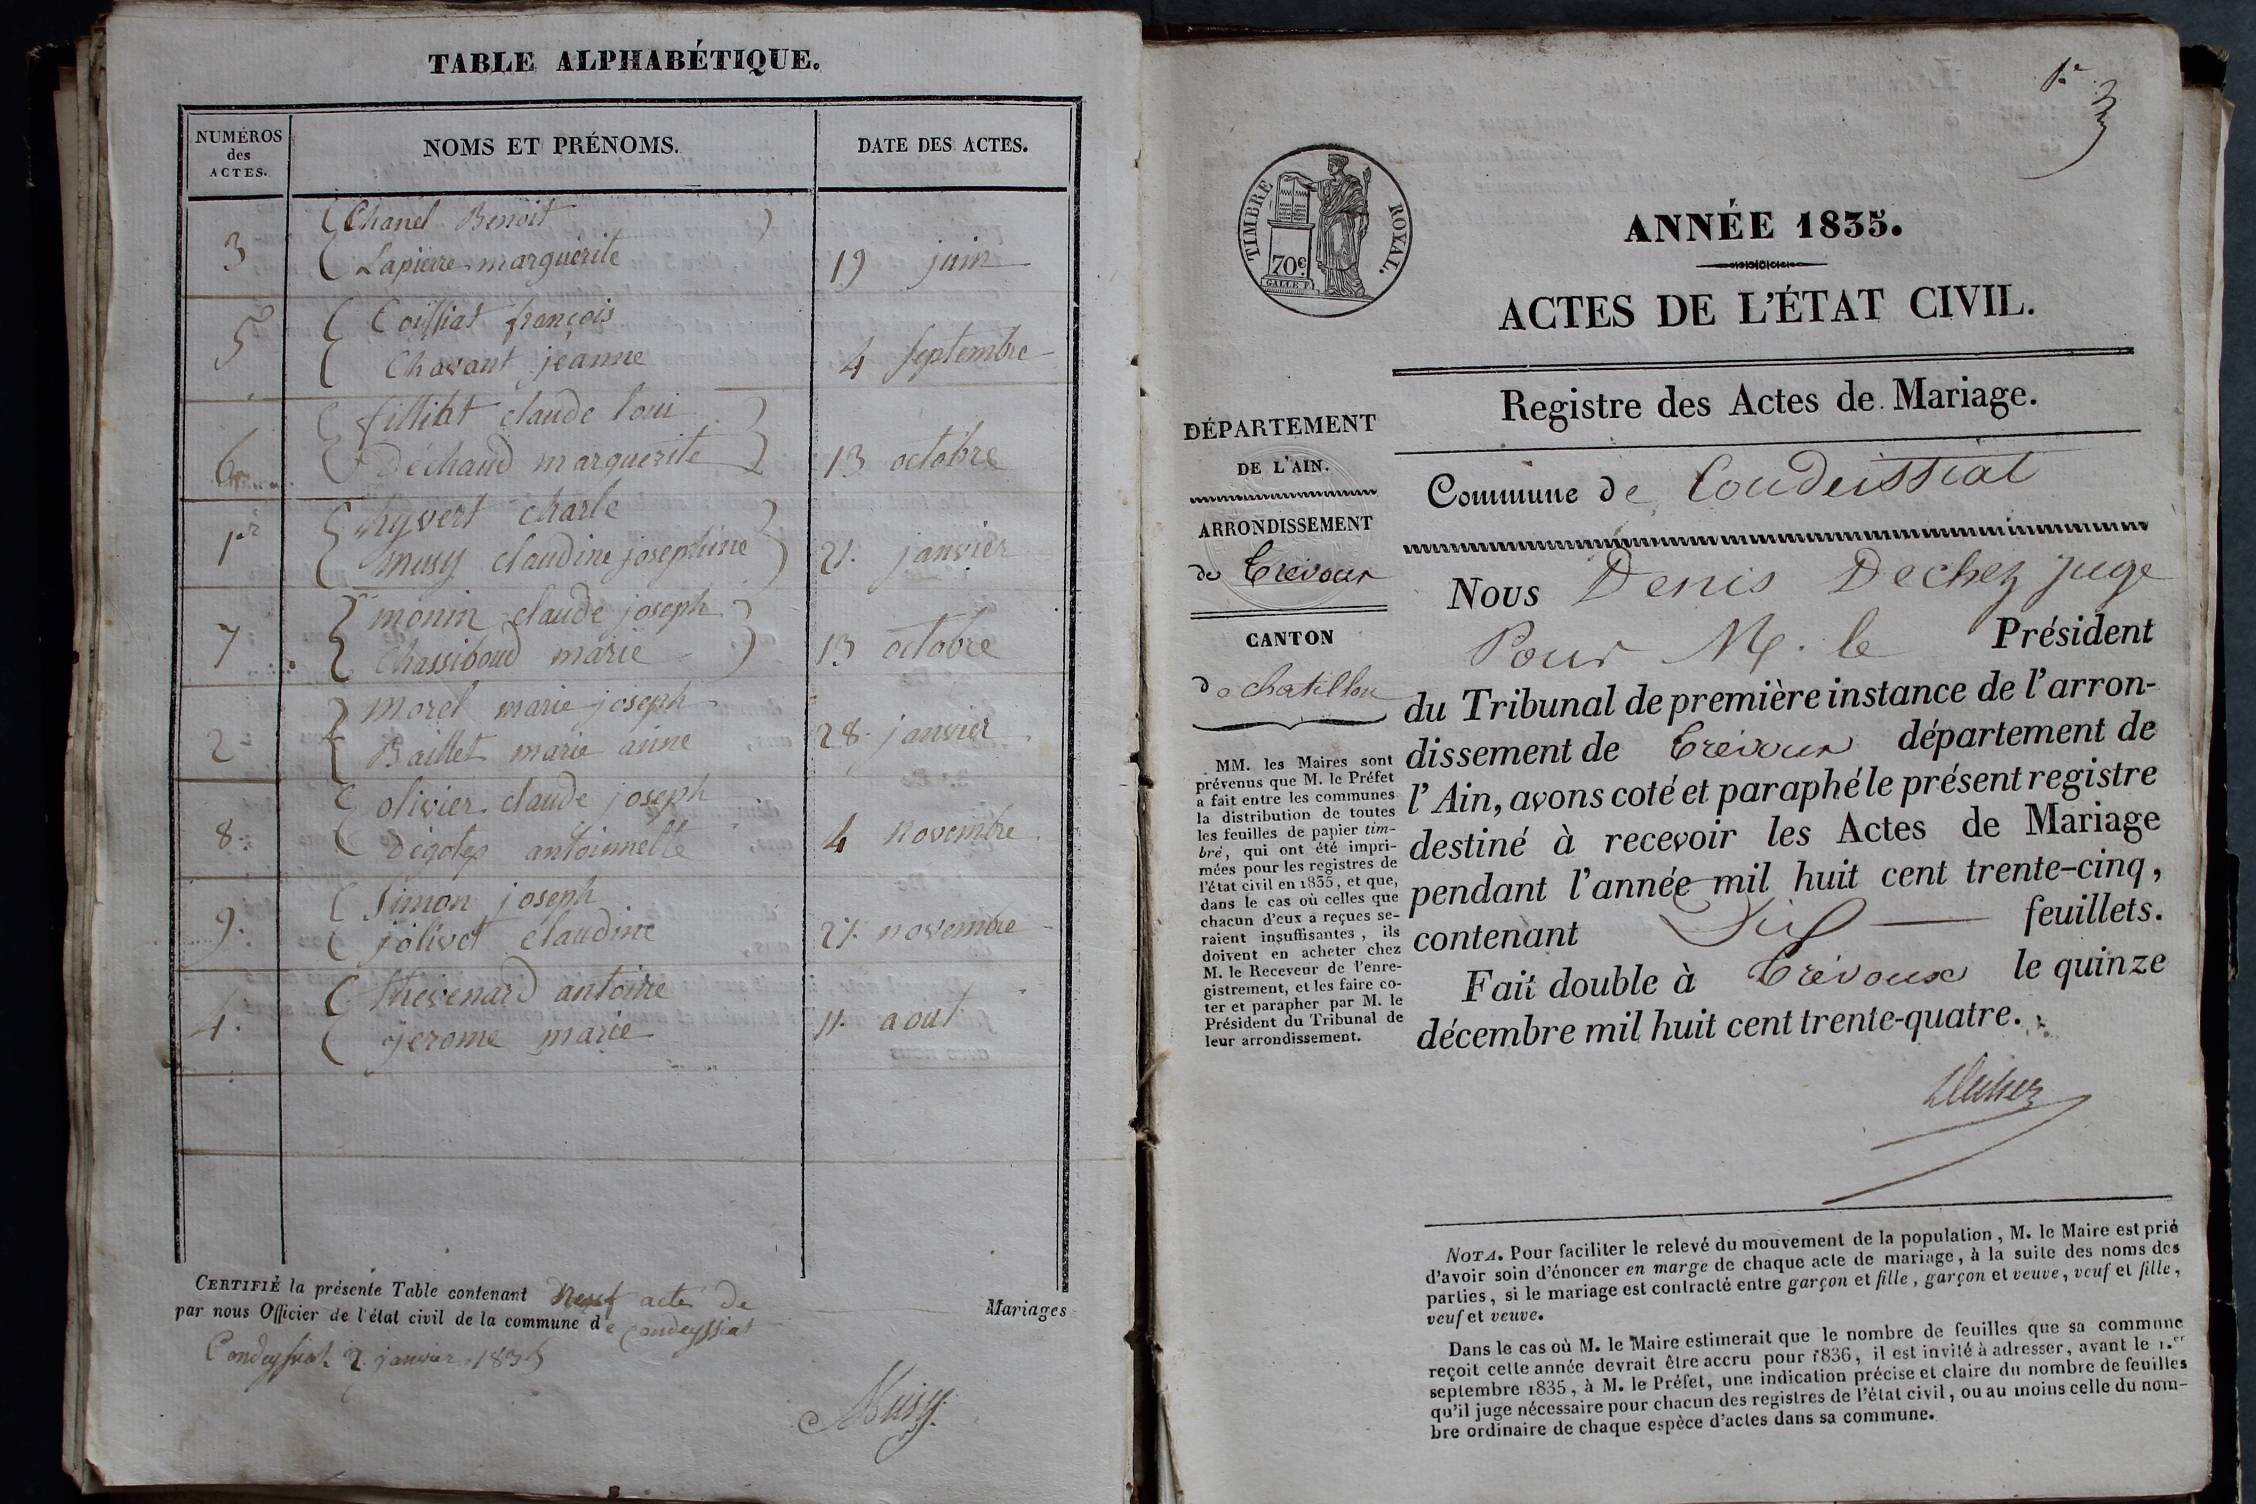 TABLE ALPHABÉTIQUE.
NUMÉROS
des
ACTES.
NOMS ET PRÉNOMS.
DATE DES ACTES.
Chanel Benoit
3 Lapierre marguerite 19 juin
Coilliat françois
5 Chavant jeanne 4 septembre
claude loui
6 Déchaud marguerite 13 octobre
hyvert charle
1er musy claudine josephine 21. janvier
monin claude joseph
7 Chassiboud marie 13 octobre
morel marie joseph
2 Baillet marie anne 28. janvier
olivier claude joseph
8 antoinette 4 novembre
Simon joseph
9. jolivet claudine novembre
thevenard antoine
4. jerome marie 11. aout
CERTIFIÉ la présente Table contenant Neuf actes de Mariages
par nous Officier de l'état civil de la commune de Condeyssiat
Condeyssiat 2 janvier 1835
Musy
1er
TIMBRE ROYAL.
70c
GALLE F.
ANNÉE 1835.
ACTES DE L'ÉTAT CIVIL.
Registre des Actes de Mariage.
Commune de Condeissiat
DÉPARTEMENT
DE L'AIN.
ARRONDISSEMENT
de Trévoux
CANTON
de chatillon
MM. les Maires sont
prévenus que M. le Préfet
a fait entre les communes
la distribution de toutes
les feuilles de papier tim-
bré, qui ont été impri-
mées pour les registres de
l'état civil en 1835, et que,
dans le cas où celles que
chacun d'eux a reçues se-
raient insuffisantes, ils
doivent en acheter chez
M. le Receveur de l'enre-
gistrement, et les faire co-
ter et parapher par M. le
Président du Tribunal de
leur arrondissement.
Nous Denis Dechez juge
Pour M. le Président
du Tribunal de première instance de l'arron-
dissement de Trévoux département de
l'Ain, avons coté et paraphé le présent registre
destiné à recevoir les Actes de Mariage
pendant l'année mil huit cent trente-cinq,
contenant Six feuillets.
Fait double à Trévoux le quinze
décembre mil huit cent trente-quatre.
Dechez
NOTA. Pour faciliter le relevé du mouvement de la population, M. le Maire est prié
d'avoir soin d'énoncer en marge de chaque acte de mariage, à la suite des noms des
parties, si le mariage est contracté entre garçon et fille, garçon et veuve, veuf et fille,
veuf et veuve.
Dans le cas où M. le Maire estimerait que le nombre de feuilles que sa commune
reçoit cette année devrait être accru pour 1836, il est invité à adresser, avant le 1.er
septembre 1835, à M. le Préfet, une indication précise et claire du nombre de feuilles
qu'il juge nécessaire pour chacun des registres de l'état civil, ou au moins celle du nom-
bre ordinaire de chaque espèce d'actes dans sa commune.